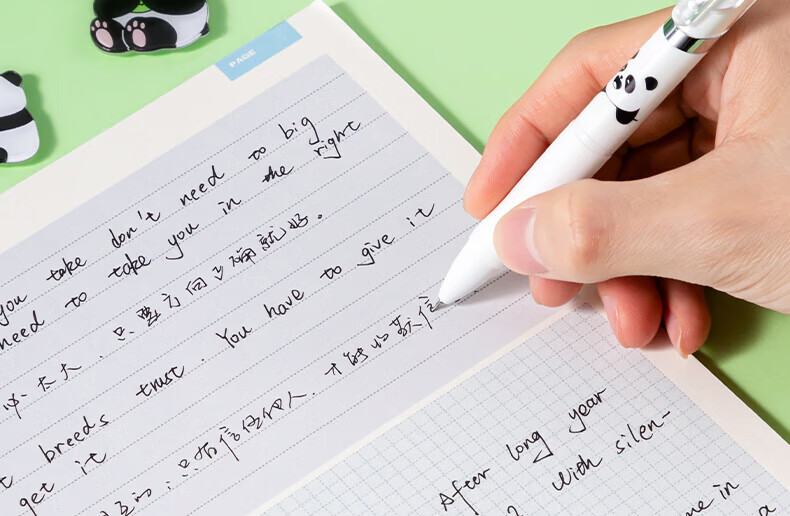 PAGE
you take don't need to big
need to take you in the right
必太大，只要方向正确就好。
t breeds trust. You have to give it
get it
互的；只有信任他人，才能收获信
After long year
with silen-
me in
a